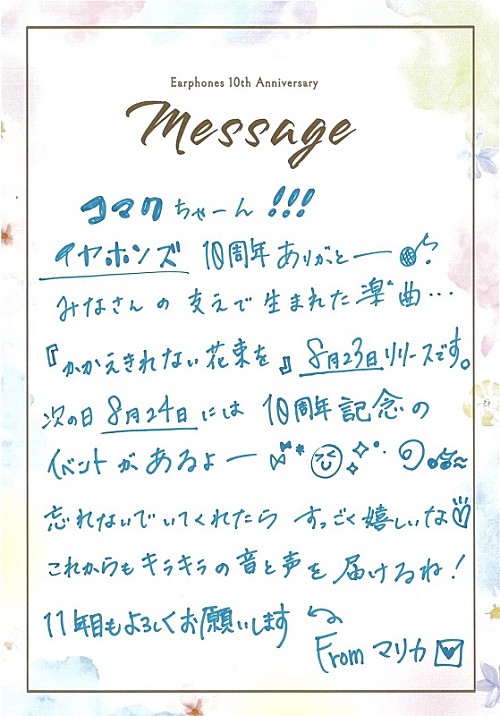 Earphones 10th Anniversary
Message
コマクちゃーん!!!
イヤホンズ 10周年ありがとー
みなさんの支えで生まれた楽曲…
『かかえきれない花束を』8月23日リリースです。
次の日8月24日には 10周年記念の
イベントがあるよー
忘れないでいてくれたら すっごく嬉しいな
これからもキラキラの音と声を届けるね!
11年目もよろしくお願いします
From マリカ